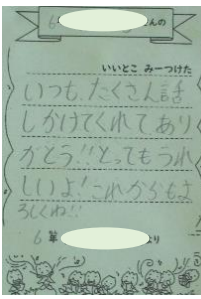 6 さんの
いいとこ みーつけた
いつも、たくさん話
しかけてくれて あり
がとう!!とってもうれ
しいよ!これからもよ
ろしくね!!
6年 より